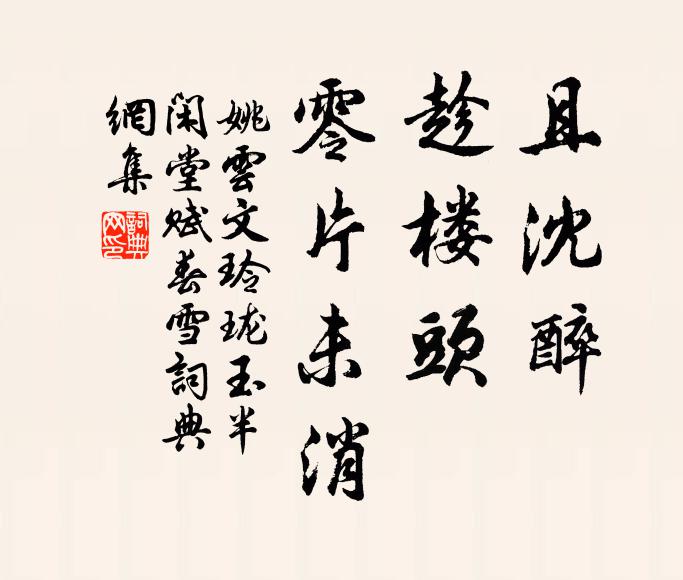 且沈醉
趁楼頭
零片未消
姚雲文玲瓏玉半
閑堂賦春雪詞典
網集
詞典网印